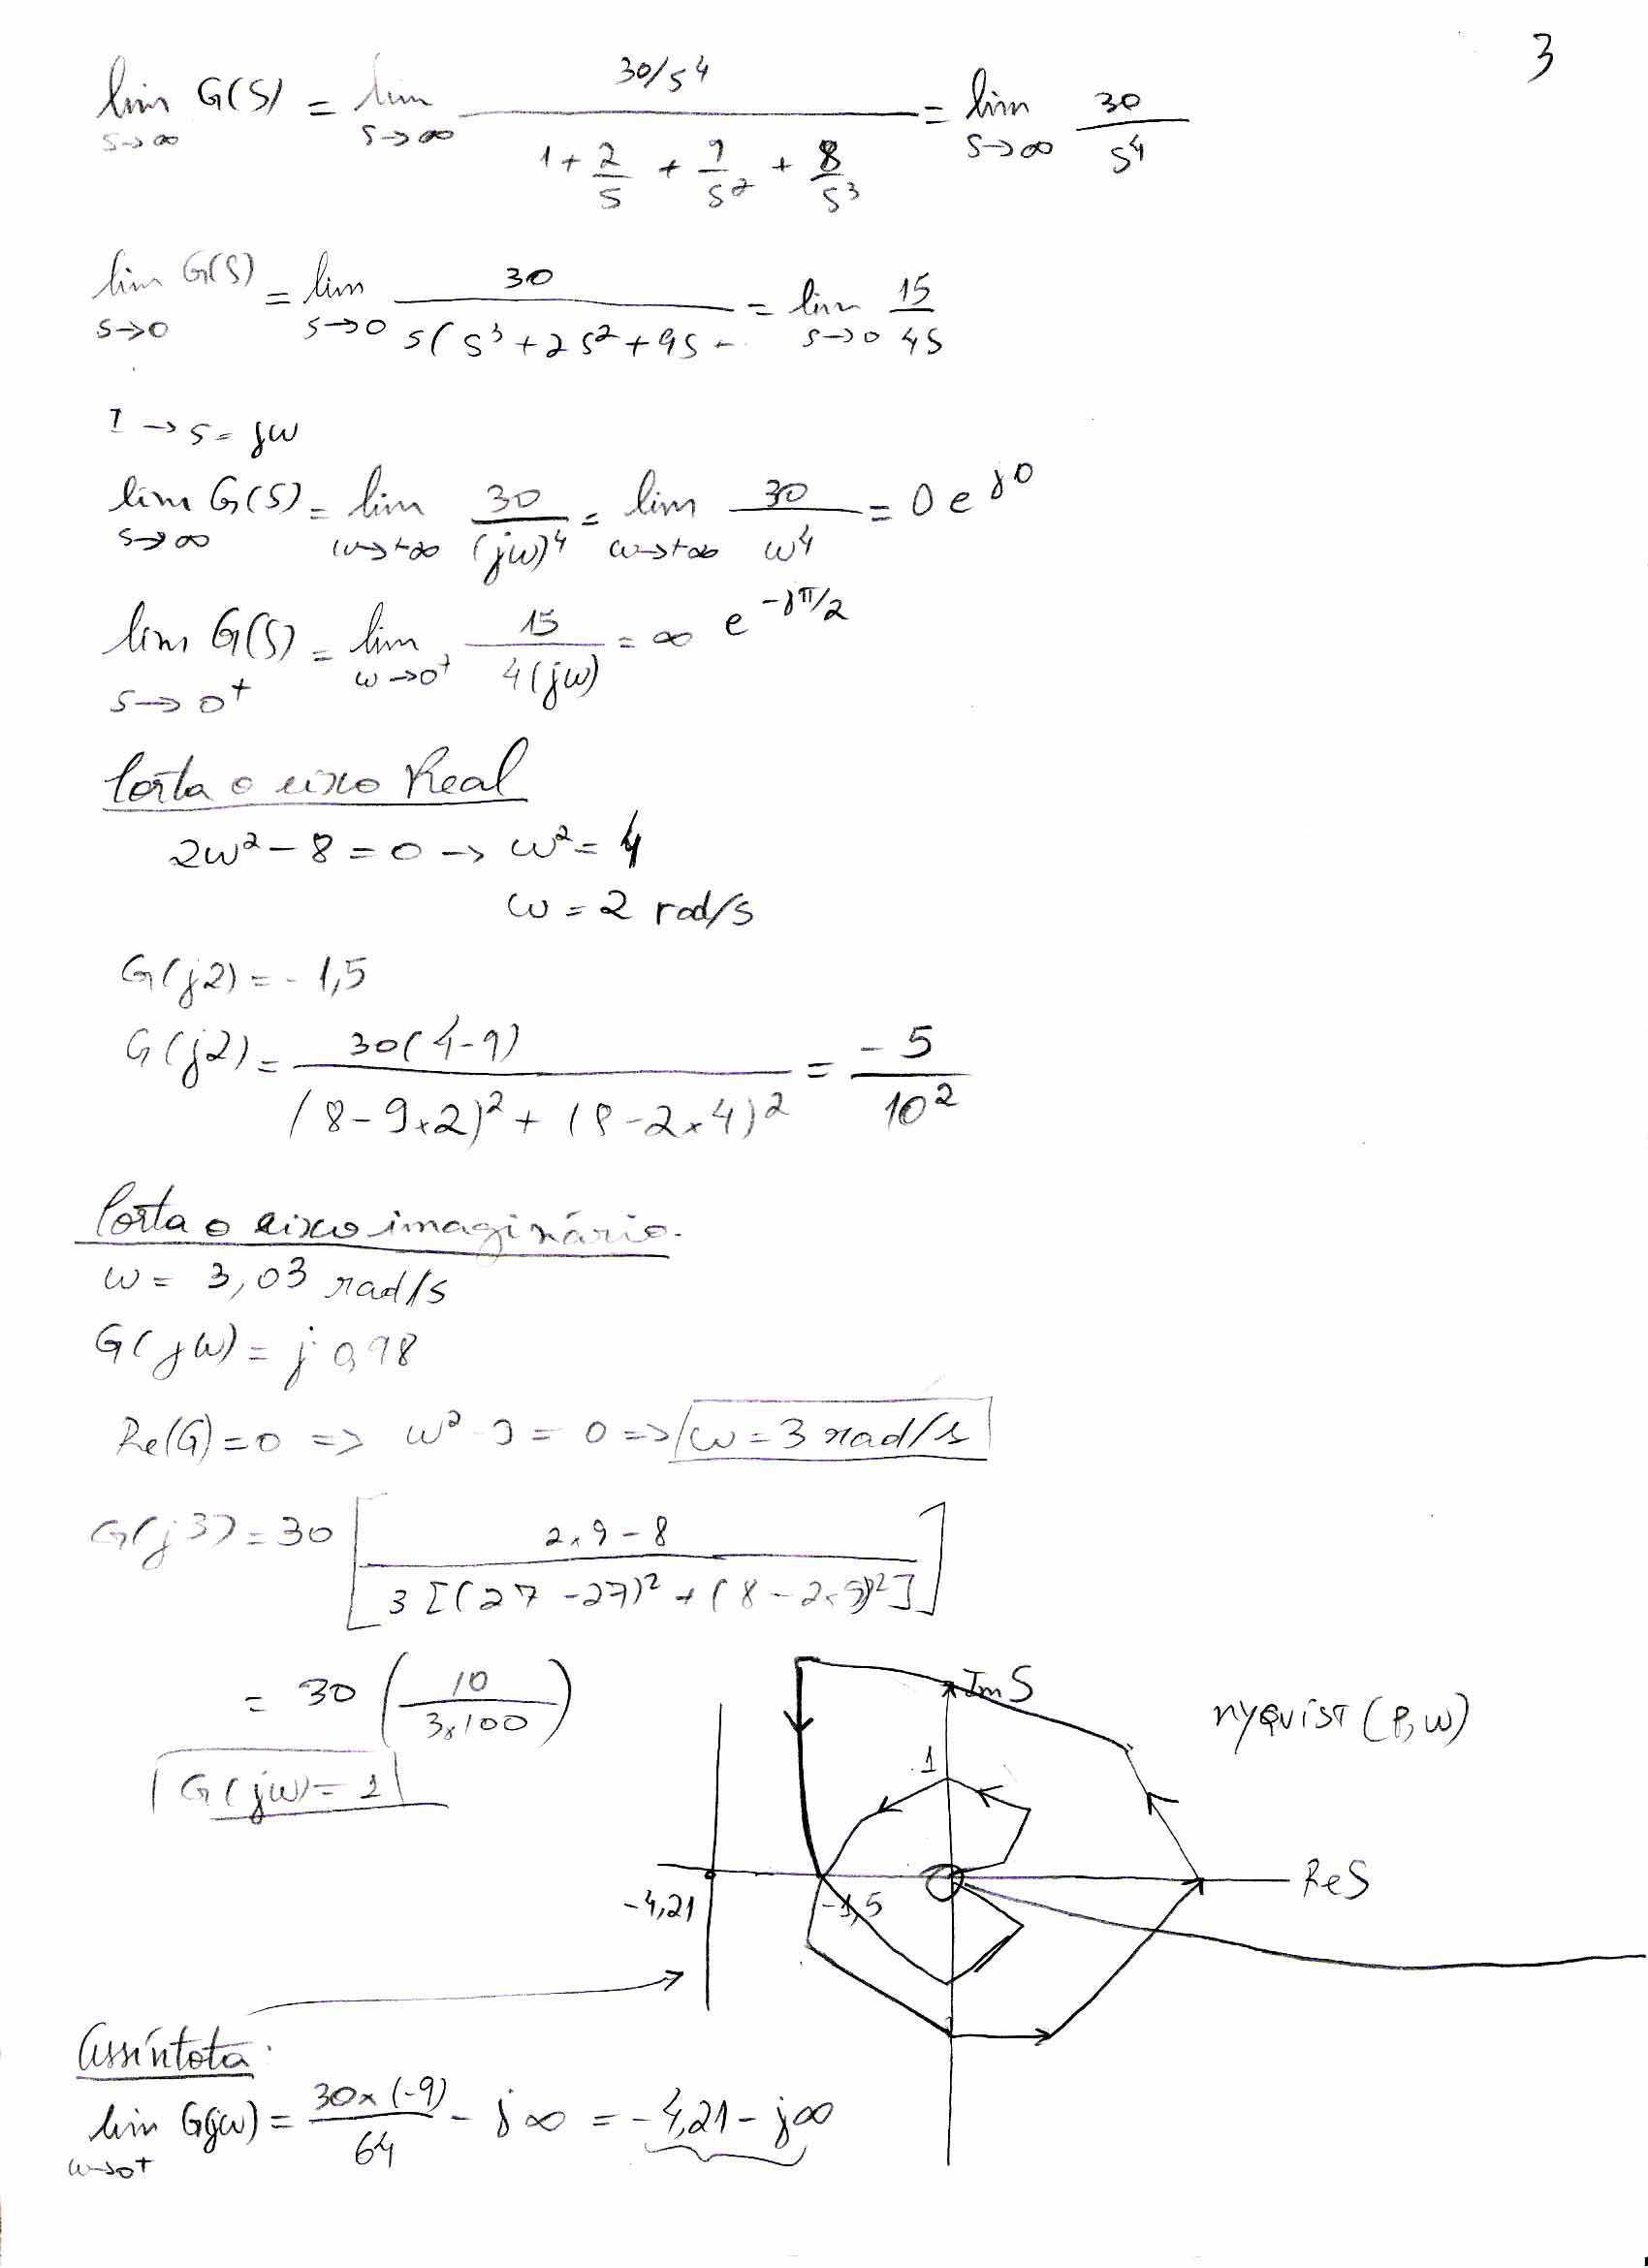 3
lim G(S) = lim (30/s⁴) / (1 + 2/s + 9/s² + 8/s³) = lim 30/s⁴
s→∞ s→∞ s→∞
lim G(S) = lim 30 / s(s³+2s²+9s - = lim 15/4s
s→0 s→0 s→0
I → s = jω
lim G(S) = lim 30/(jω)⁴ = lim 30/ω⁴ = 0 e^{j0}
s→∞ ω→+∞ ω→+∞
lim G(S) = lim 15/4(jω) = ∞ e^{-jπ/2}
s→0⁺ ω→0⁺
Corta o eixo Real
2ω² - 8 = 0 → ω² = 4
ω = 2 rad/s
G(j2) = - 1,5
G(j2) = 30(4-9) / (8-9×2)² + (8-2×4)² = -5/10²
Corta o eixo imaginário.
ω = 3,03 rad/s
G(jω) = j 0,98
Re(G) = 0 => ω² - 9 = 0 => ω = 3 rad/s
G(j3) = 30 [ 2×9-8 / 3[(27-27)² + (8-2×9)²] ]
= 30 (10 / 3×100)
G(jω) = 1
ImS
nyquist (P, ω)
1
ReS
-4,21
-1,5
Assíntota:
lim G(jω) = 30×(-9)/64 - j∞ = -4,21 - j∞
ω→0⁺